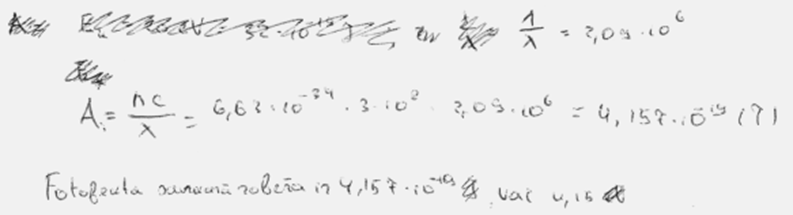 1/λ = 2,09 · 10^6
A = hc/λ = 6,63 · 10^-34 · 3 · 10^8 · 2,09 · 10^6 = 4,157 · 10^-19 (J)
Fotoefekta robeža ir 4,157 · 10^-19 vai 4,15